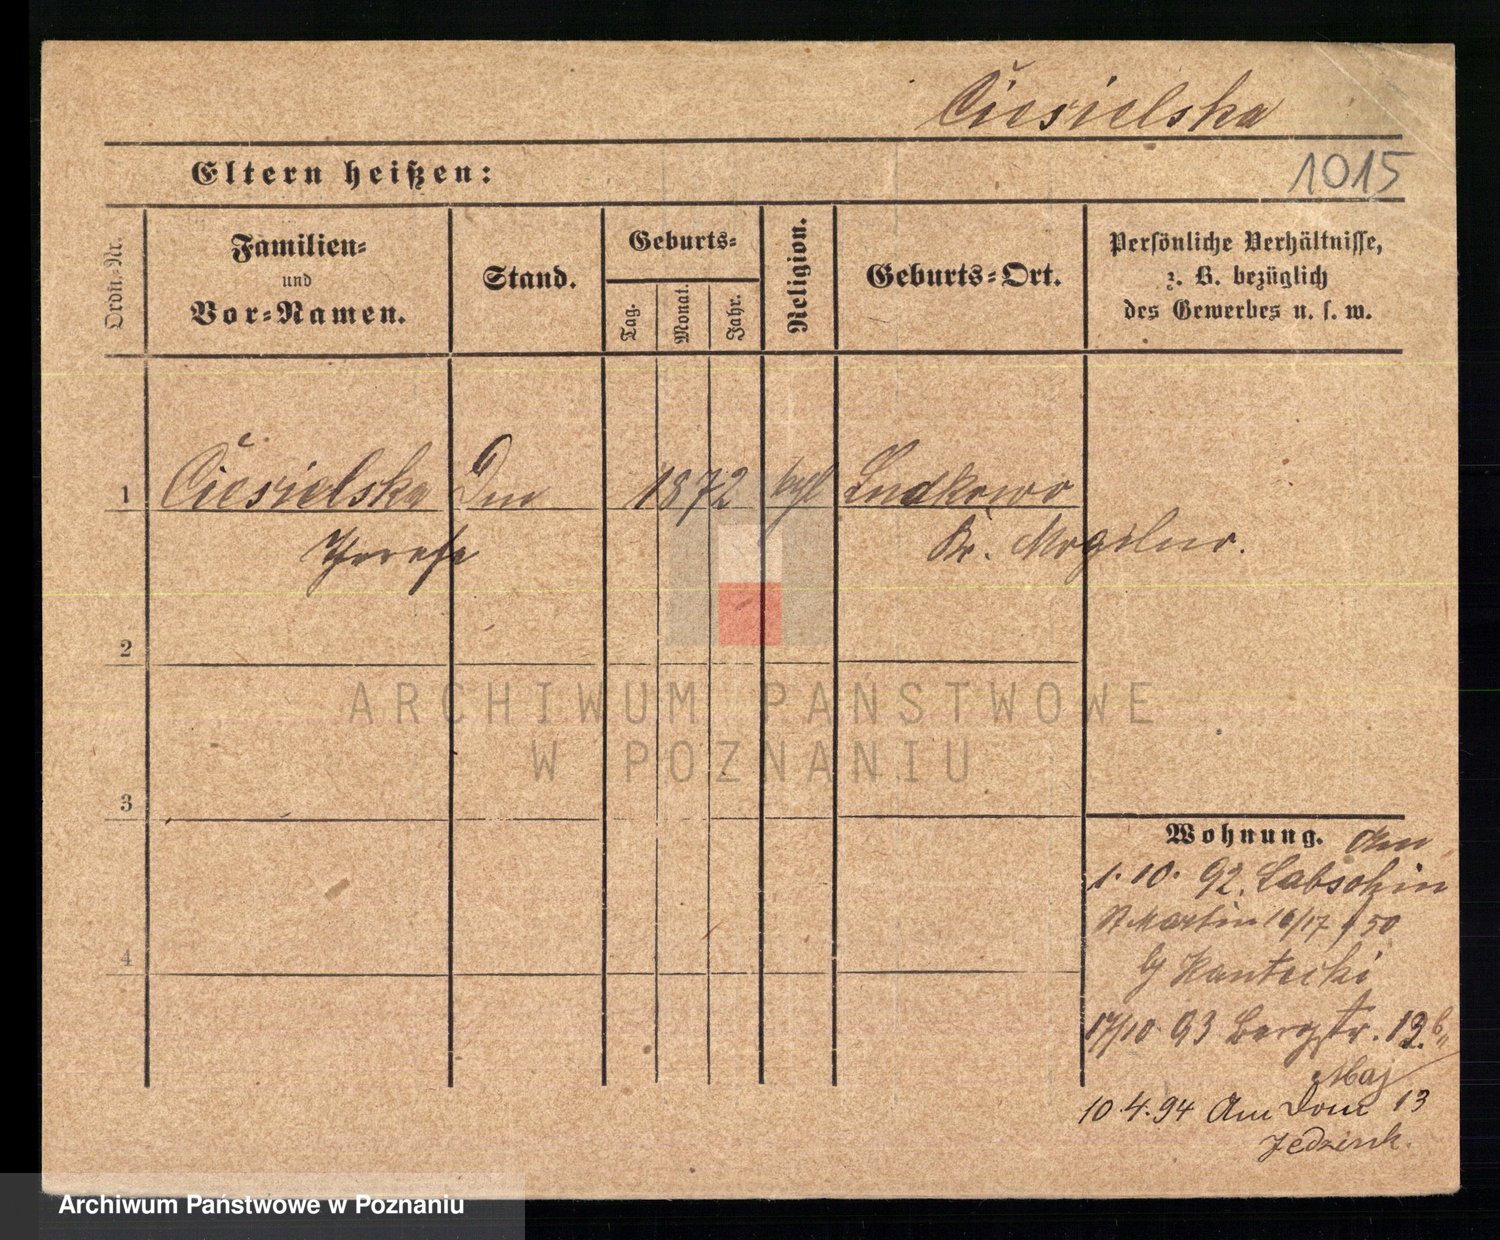 Ciesielska
1015
Eltern heißen:
Ordn.-Nr.
Familien-
und
Vor-Namen.
Stand.
Geburts-
Tag.
Monat.
Jahr.
Religion.
Geburts-Ort.
Persönliche Verhältnisse,
z. B. bezüglich
des Gewerbes u. s. w.
1 Ciesielska 1872 Ludkowo
Therese Kr. Mogilno.
2
ARCHIWUM PAŃSTWOWE
W POZNANIU
3
Wohnung.
1.10.92. Labschin
St Martin 16/17 50
Kantecki
17/10 93 Bergstr. 13.
4
10.4.94 Am Dom 13
Archiwum Państwowe w Poznaniu